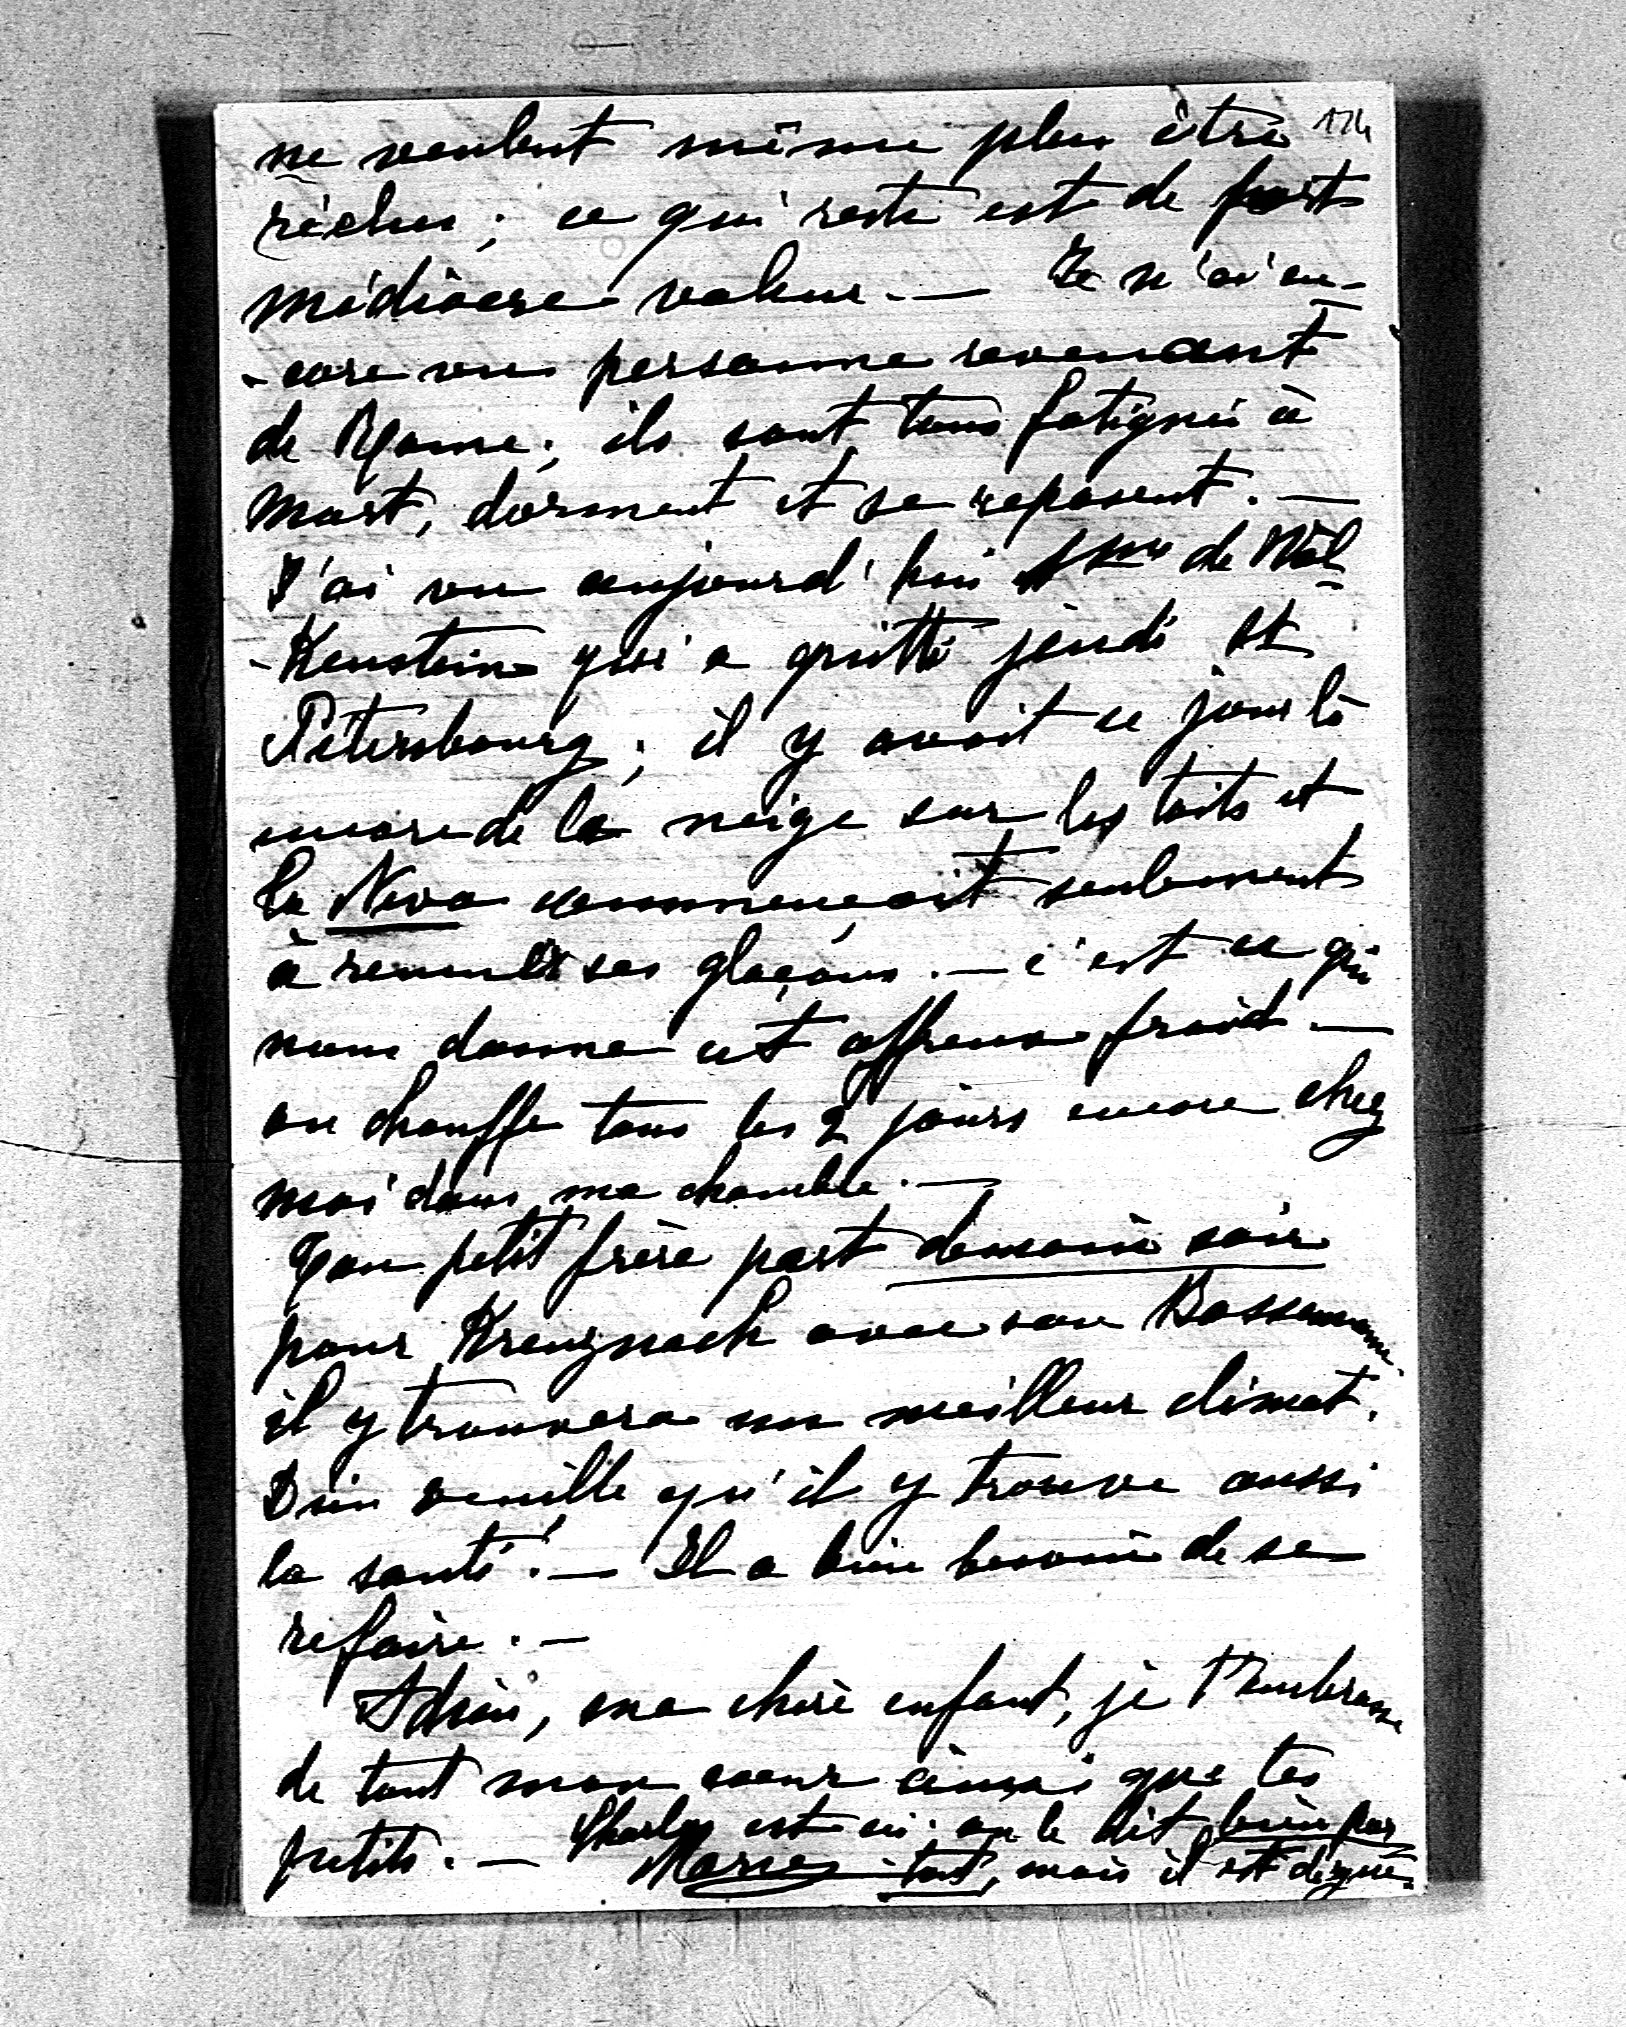 174
ne veulent même plus être
réélus; ce qui reste est de fort
médiocre valeur. — Je n'ai en-
-core vu personne revenant
de Rome; ils sont tous fatigués à
mort, dorment et se reposent. —
J'ai vu aujourd'hui Mme de Wal-
-kenstein qui a quitté jeudi St
Pétersbourg; il y avait ce jour là
encore de la neige sur les toits et
la Neva commençait seulement
à remuer ses glaçons. — c'est ce qui
nous donne cet affreux froid —
on chauffe tous les 2 jours encore chez
moi dans ma chambre. —
Ton petit frère part demain soir
pour Kreuznach avec son
il y trouvera un meilleur climat.
Dieu veuille qu'il y trouve aussi
la santé! — Il a bien besoin de se
refaire. —
Adieu, ma chère enfant, je t'embrasse
de tout mon coeur ainsi que tes
petits. — Charles est ici. on le dit bien por
Marie -tant, mais il est